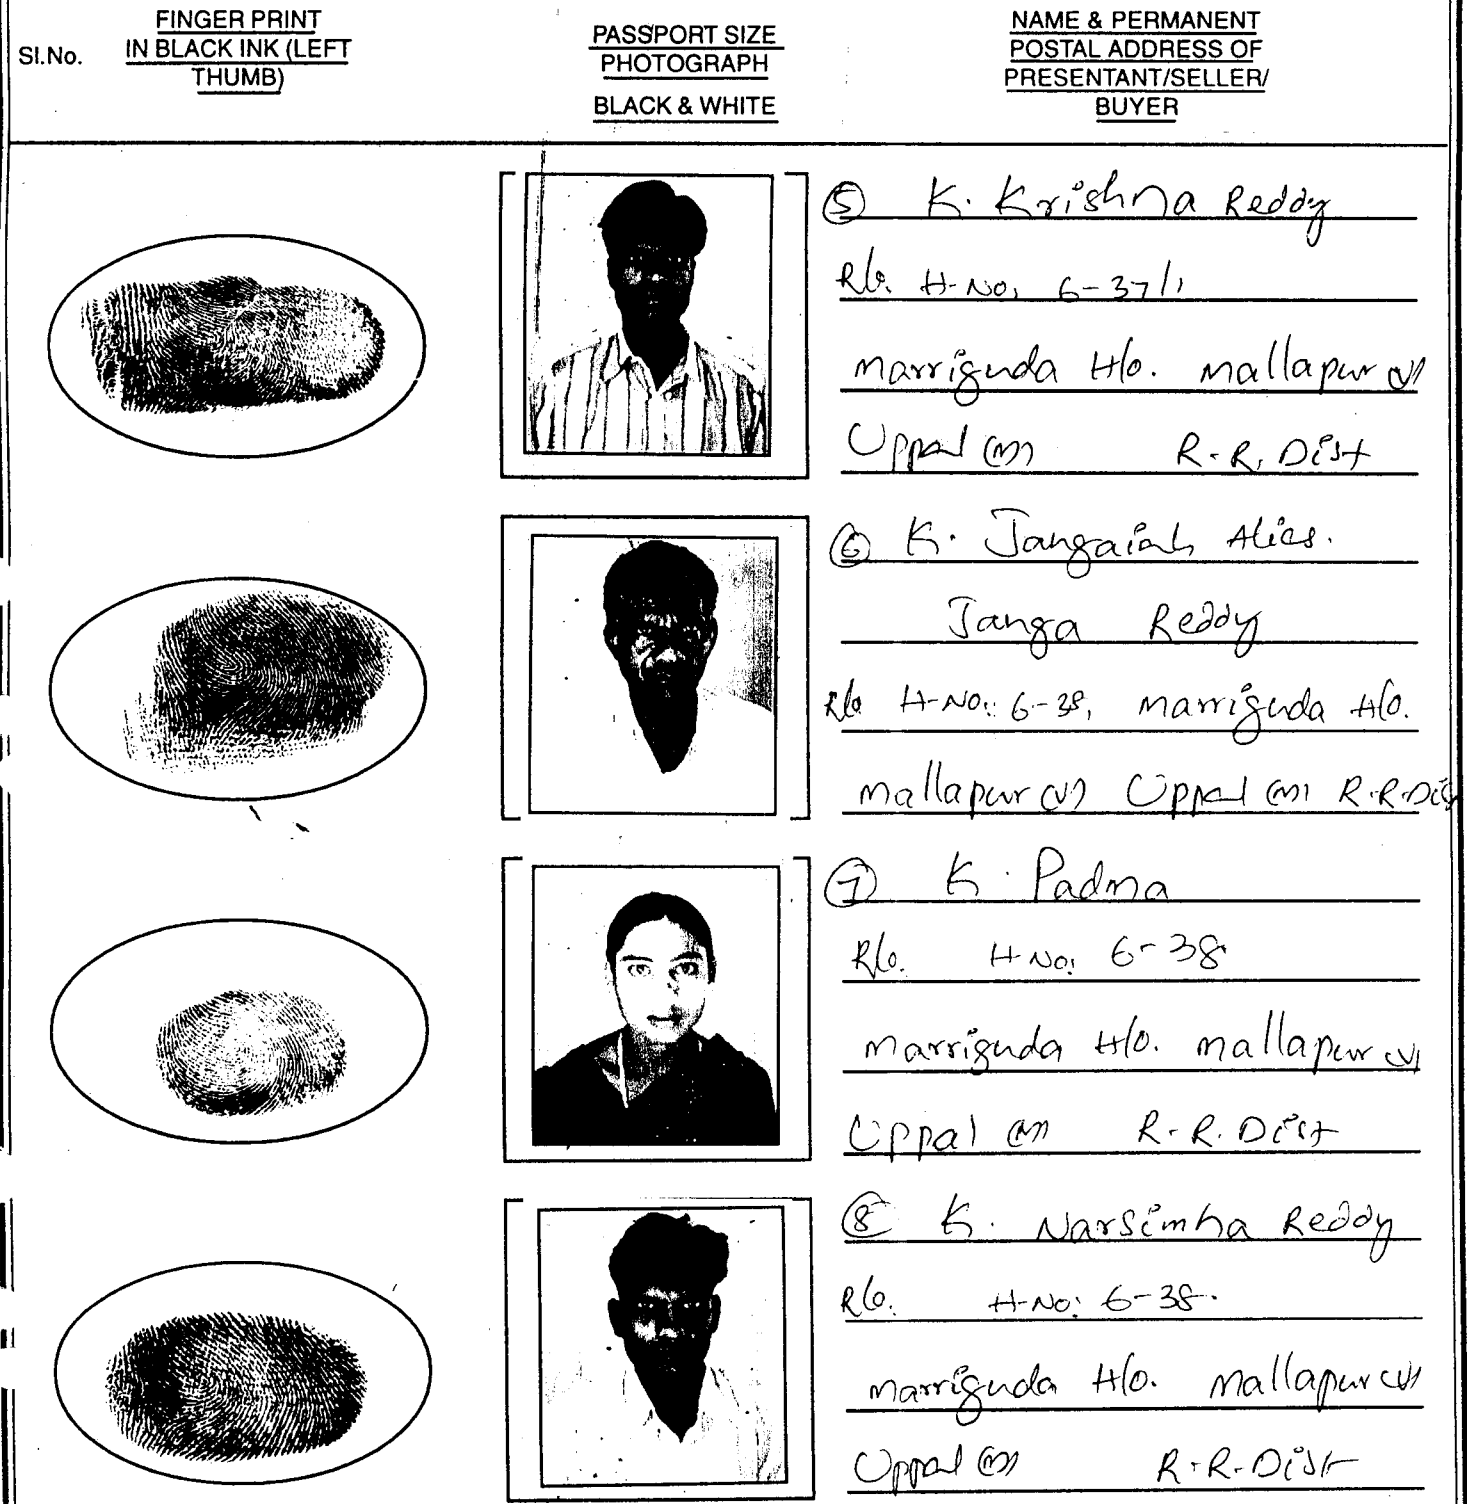 Sl.No.
FINGER PRINT
IN BLACK INK (LEFT
THUMB)
PASSPORT SIZE
PHOTOGRAPH
BLACK & WHITE
NAME & PERMANENT
POSTAL ADDRESS OF
PRESENTANT/SELLER/
BUYER
⑤ K. Krishna Reddy
R/o. H-No. 6-37/1
Marriguda H/o. Mallapur (V)
Uppal (M) R.R. Dist
⑥ K. Jangaiah Alias.
Janga Reddy
R/o H-No: 6-38, Marriguda H/o.
Mallapur (V) Uppal (M) R.R. Dis
⑦ K. Padma
R/o. H-No: 6-38
Marriguda H/o. Mallapur (V)
Uppal (M) R.R. Dist
⑧ K. Narsimha Reddy
R/o. H-No: 6-38.
Marriguda H/o. Mallapur (V)
Uppal (M) R.R. Dist